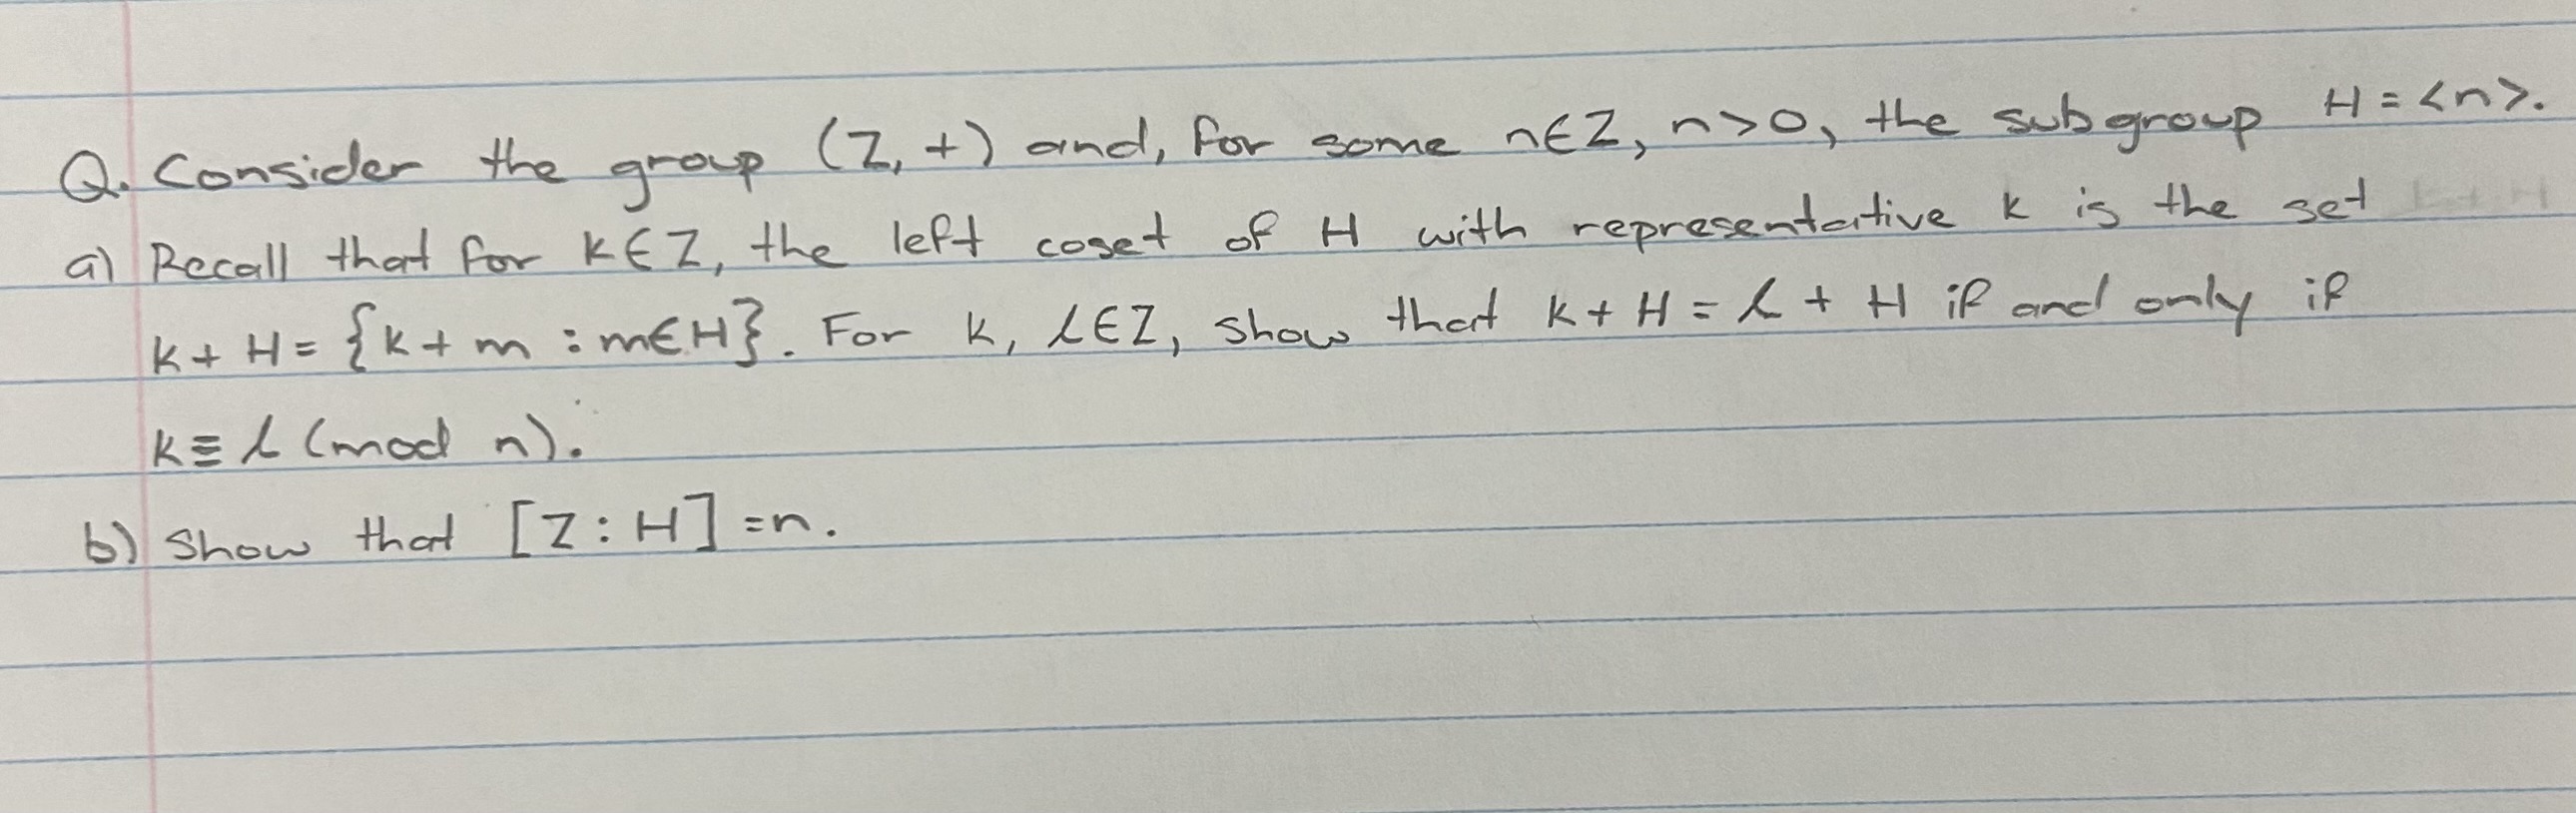 Q. Consider the group (Z, +) and, for some n∈Z, n>0, the subgroup H = <n>.
a) Recall that for k∈Z, the left coset of H with representative k is the set k + H
k + H = {k + m : m∈H}. For k, l∈Z, show that k + H = l + H if and only if
k ≡ l (mod n).
b) Show that [Z : H] = n.